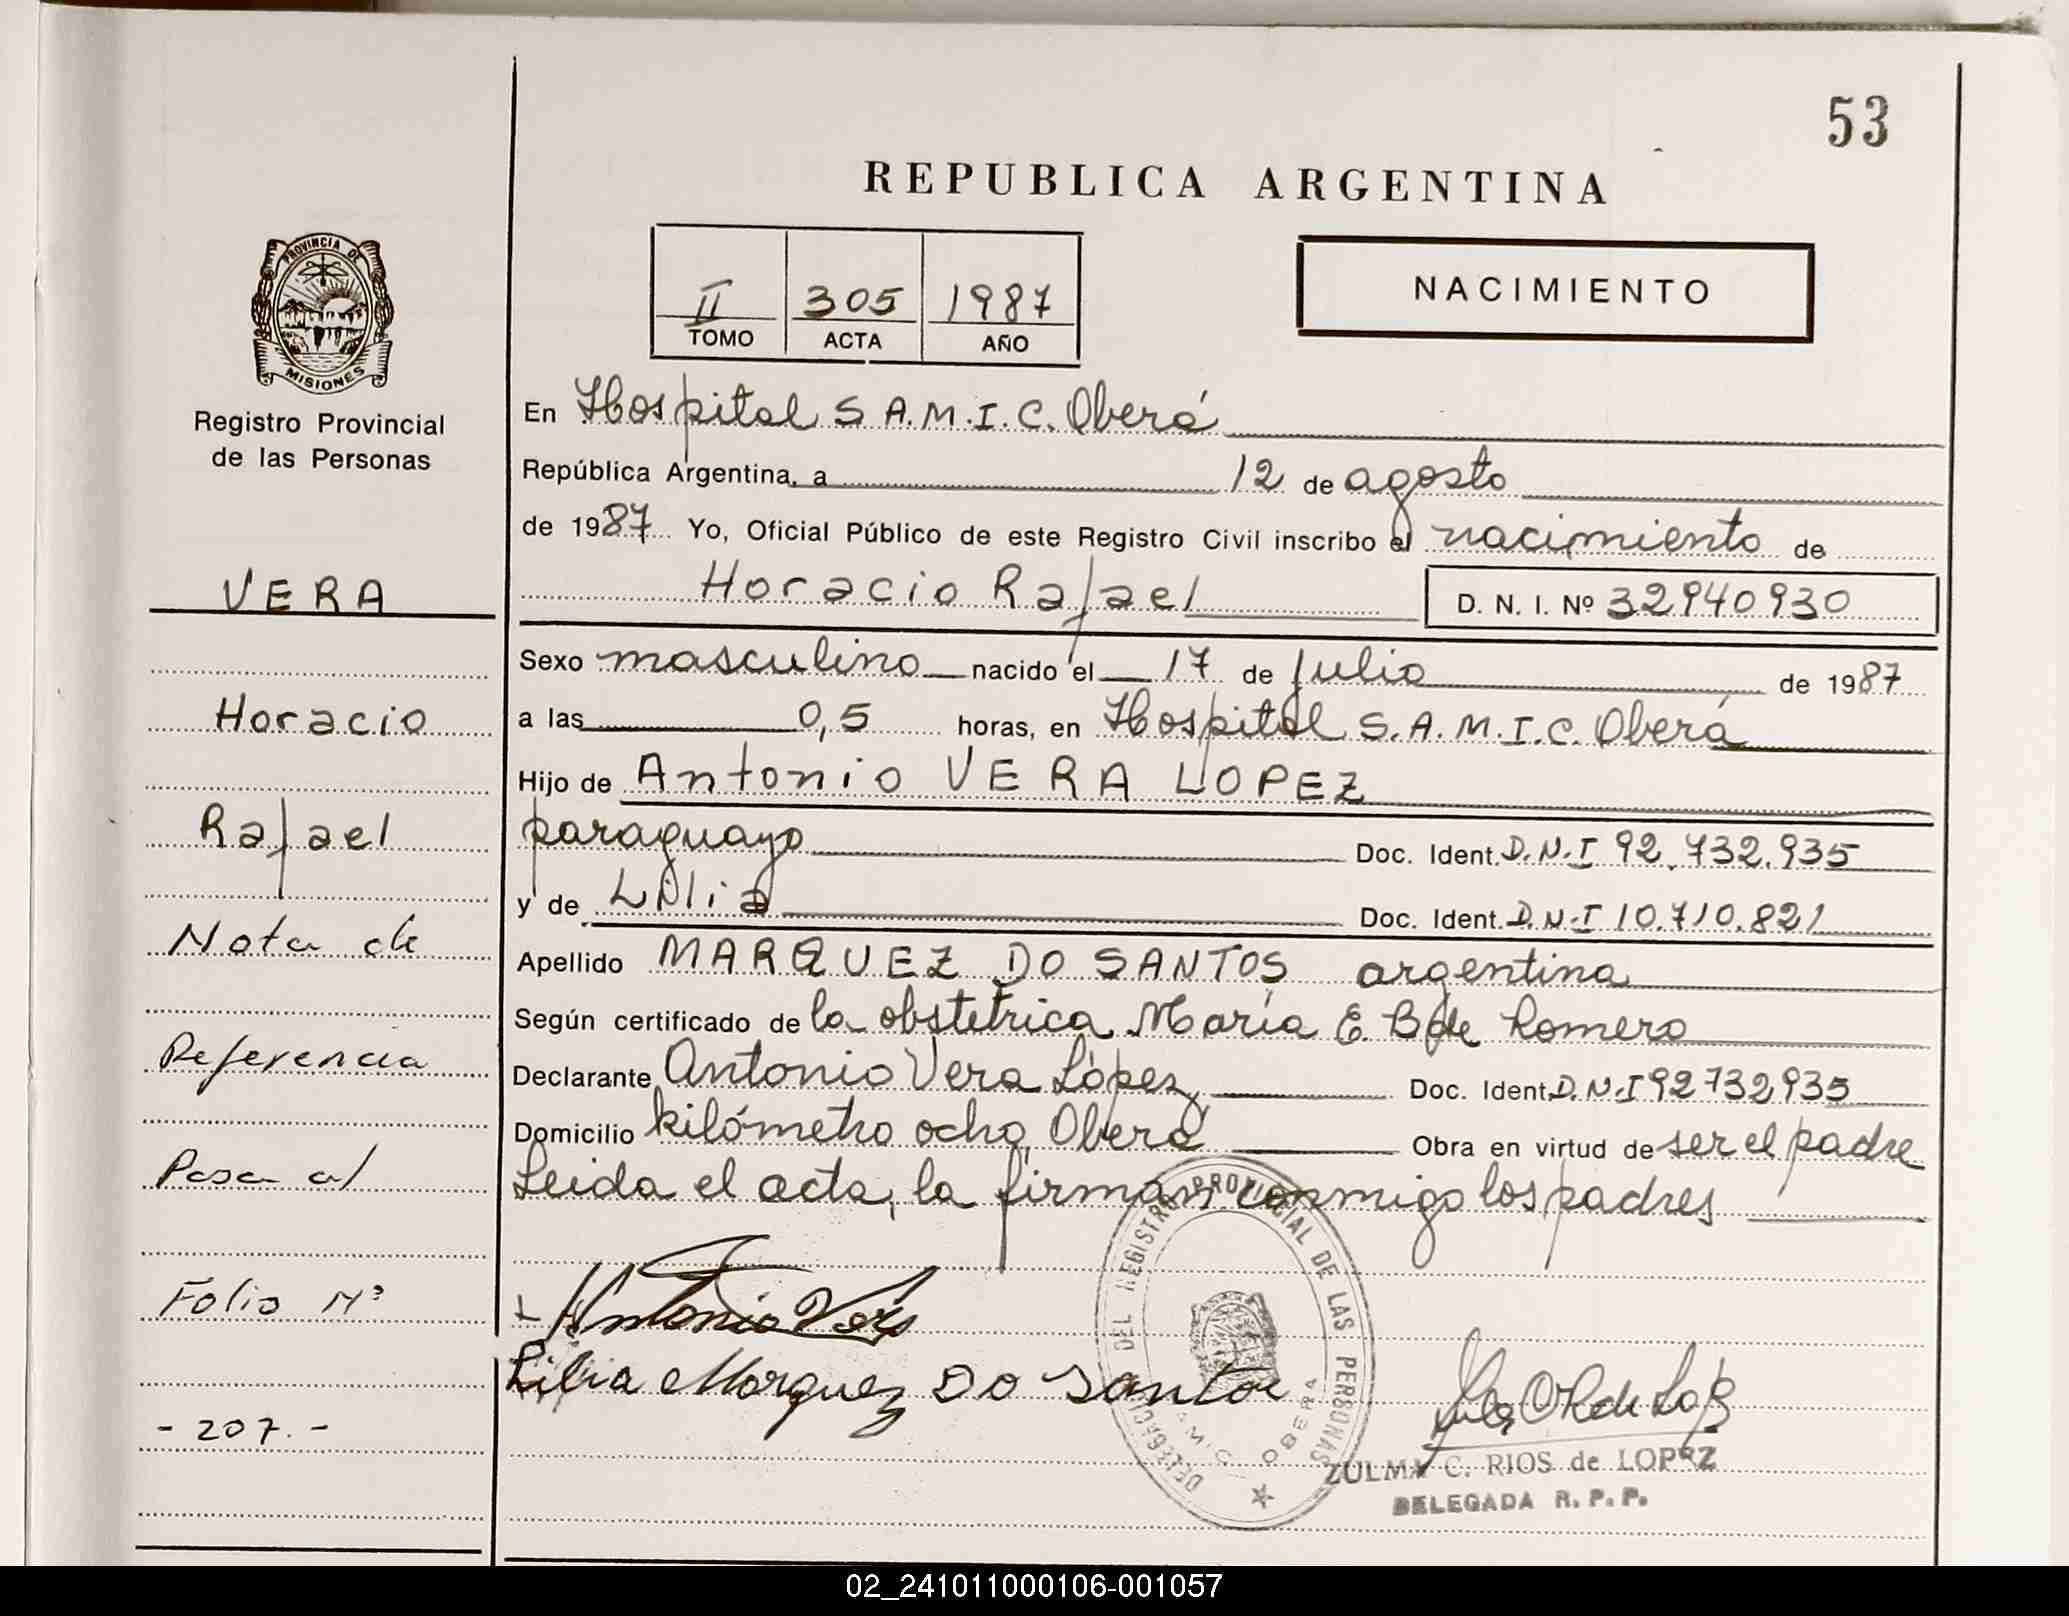 53
REPUBLICA ARGENTINA
PROVINCIA DE
MISIONES
Registro Provincial
de las Personas
II 305 1987
TOMO ACTA AÑO
NACIMIENTO
En Hospital S A.M.I.C. Oberá
República Argentina, a 12 de agosto
de 1987 Yo, Oficial Público de este Registro Civil inscribo el nacimiento de
Horacio Rafael D. N. I. Nº 32940930
Sexo masculino nacido el 17 de Julio de 1987
a las 0,5 horas, en Hospital S.A.M.I.C. Oberá
Hijo de Antonio VERA LOPEZ
paraguayo Doc. Ident. D.N.I 92.732.935
y de Lilia Doc. Ident. D.N.I 10.710.821
Apellido MARQUEZ DO SANTOS argentina
Según certificado de la obstetrica María E. B de Romero
Declarante Antonio Vera López Doc. Ident. D.N.I 92732935
Domicilio kilómetro ocho Oberá Obra en virtud de ser el padre
Leida el acta, la firman conmigo los padres
Antonio Vera
Lilia Marquez Do Santos
DELEGACION DEL REGISTRO PROVINCIAL DE LAS PERSONAS
SAMIC OBERA
ZULMA C. RIOS de LOPEZ
DELEGADA R. P. P.
VERA
Horacio
Rafael
Nota de
Referencia
Pasa al
Folio Nº
- 207. -
02_241011000106-001057